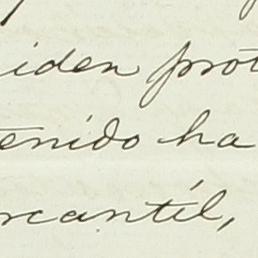 iden prot
enido ha
rcantil,